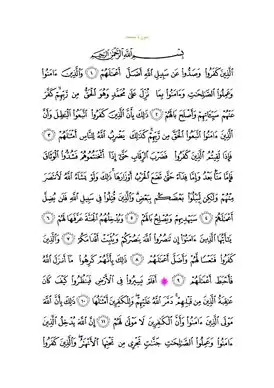 سورة محمد
بسم الله الرحمن الرحيم
الذين كفروا وصدوا عن سبيل الله أضل أعملهم ١ والذين ءامنوا
وعملوا الصلحت وءامنوا بما نزل على محمد وهو الحق من ربهم كفر
عنهم سيءاتهم وأصلح بالهم ٢ ذلك بأن الذين كفروا اتبعوا البطل وأن
الذين ءامنوا اتبعوا الحق من ربهم كذلك يضرب الله للناس أمثلهم ٣
فإذا لقيتم الذين كفروا فضرب الرقاب حتى إذا أثخنتموهم فشدوا الوثاق
فإما منا بعد وإما فداء حتى تضع الحرب أوزارها ذلك ولو يشاء الله لانتصر
منهم ولكن ليبلوا بعضكم ببعض والذين قتلوا في سبيل الله فلن يضل
أعملهم ٤ سيهديهم ويصلح بالهم ٥ ويدخلهم الجنة عرفها لهم ٦
يأيها الذين ءامنوا إن تنصروا الله ينصركم ويثبت أقدامكم ٧ والذين
كفروا فتعسا لهم وأضل أعملهم ٨ ذلك بأنهم كرهوا ما أنزل الله
فأحبط أعملهم ٩ أفلم يسيروا في الأرض فينظروا كيف كان
عقبة الذين من قبلهم دمر الله عليهم وللكفرين أمثلها ١٠ ذلك بأن الله
مولى الذين ءامنوا وأن الكفرين لا مولى لهم ١١ إن الله يدخل الذين
ءامنوا وعملوا الصلحت جنت تجري من تحتها الأنهر والذين كفروا